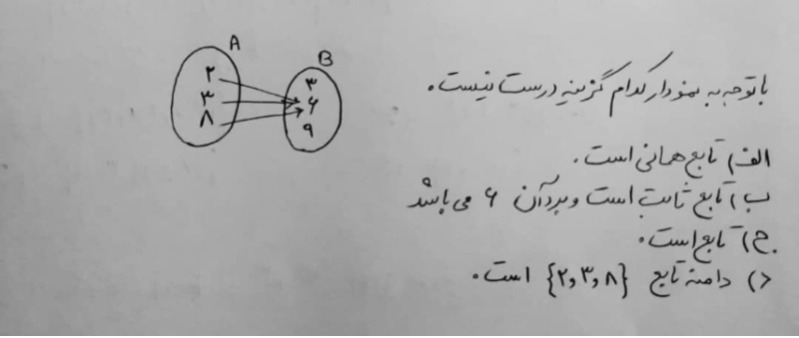 A
B
۲
۳
۸
۳
۶
۹
با توجه به نمودار کدام گزینه درست نیست.
الف) تابع همانی است.
ب) تابع ثابت است و برد آن ۶ می باشد
ج) تابع است.
د) دامنه تابع {۲,۳,۸} است.